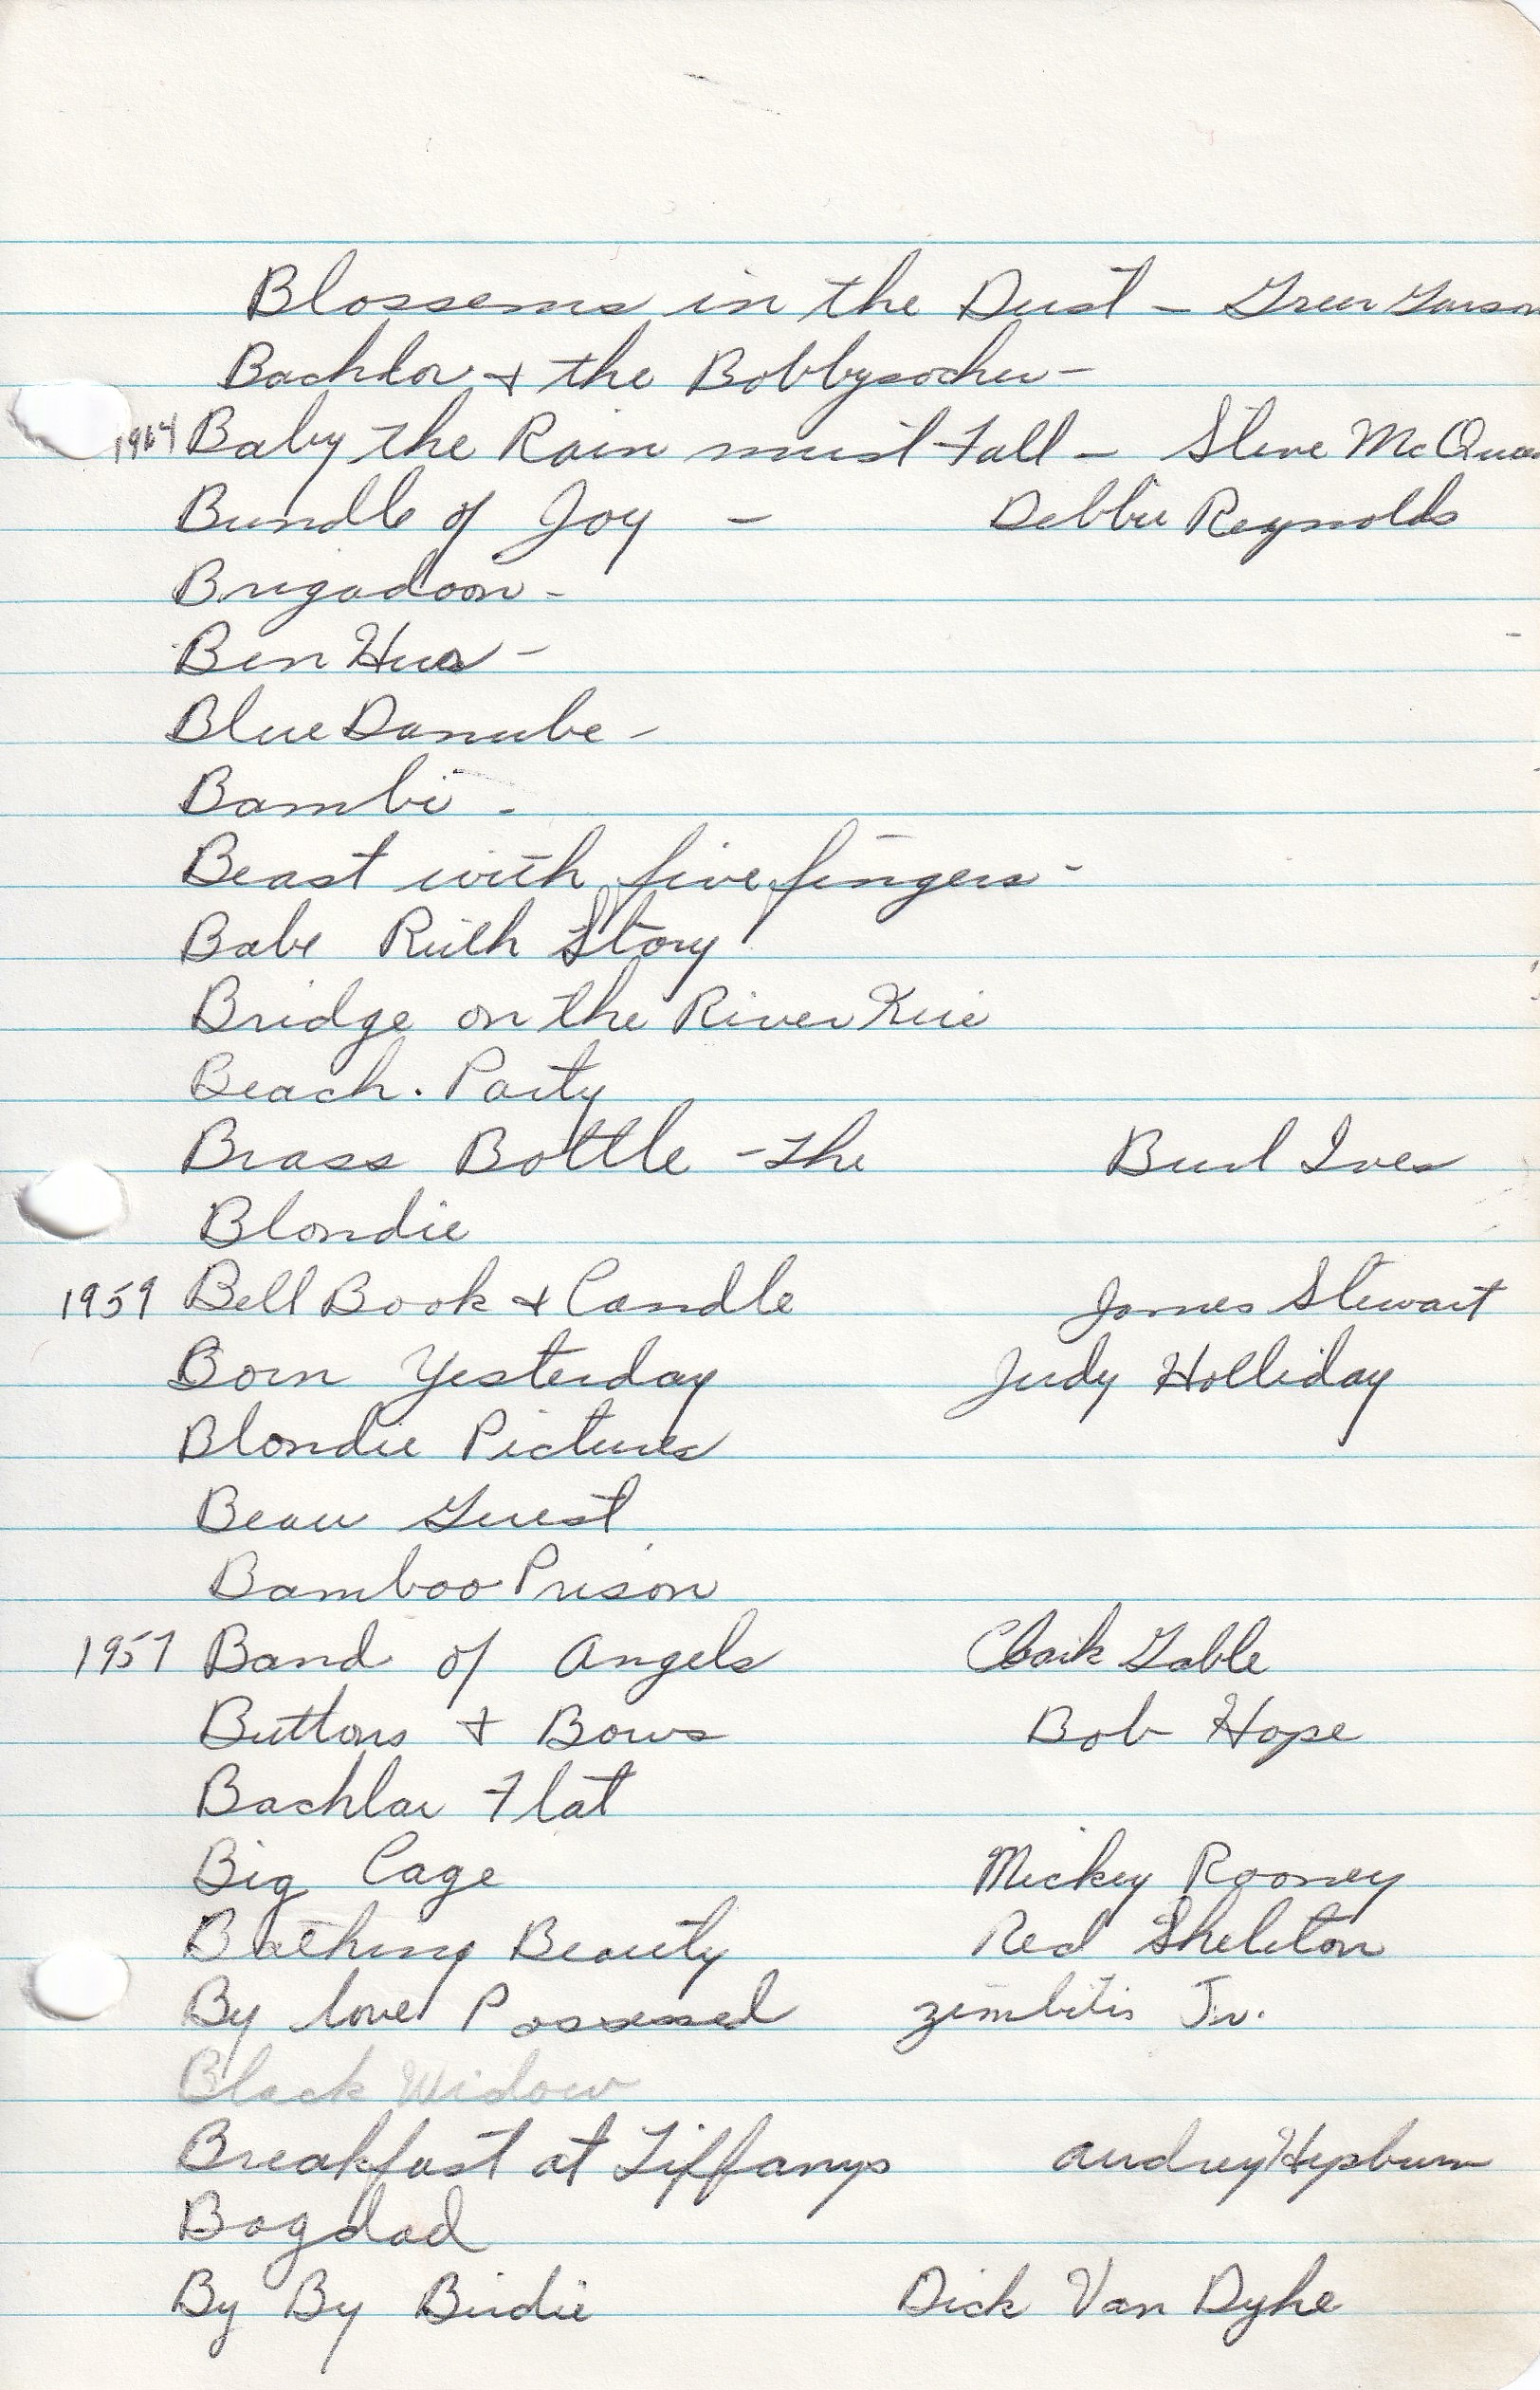 Blossems in the Dust - Greer Garson
Bachlor + the Bobbysocher -
1964 Baby the Rain must Fall - Steve McQueen
Bundle of Joy - Debbie Reynolds
Brigadoon -
Ben Hur -
Blue Danube -
Bambi -
Beast with five fingers -
Babe Ruth Story
Bridge on the River Kwi
Beach. Party
Brass Bottle - the Burl Ives
Blondie
1959 Bell Book + Candle James Stewart
Born Yesterday Judy Holliday
Blondie Pictures
Beau Guest
Bamboo Prison
1957 Band of Angels Clark Gable
Buttons + Bows Bob Hope
Bachlar Flat
Big Cage Mickey Rooney
Bathing Beauty Red Skeleton
By love Possessed zimbitis Jr.
Black Widow
Breakfast at Tiffanys Audrey Hepburn
Bagdad
By By Birdie Dick Van Dyke